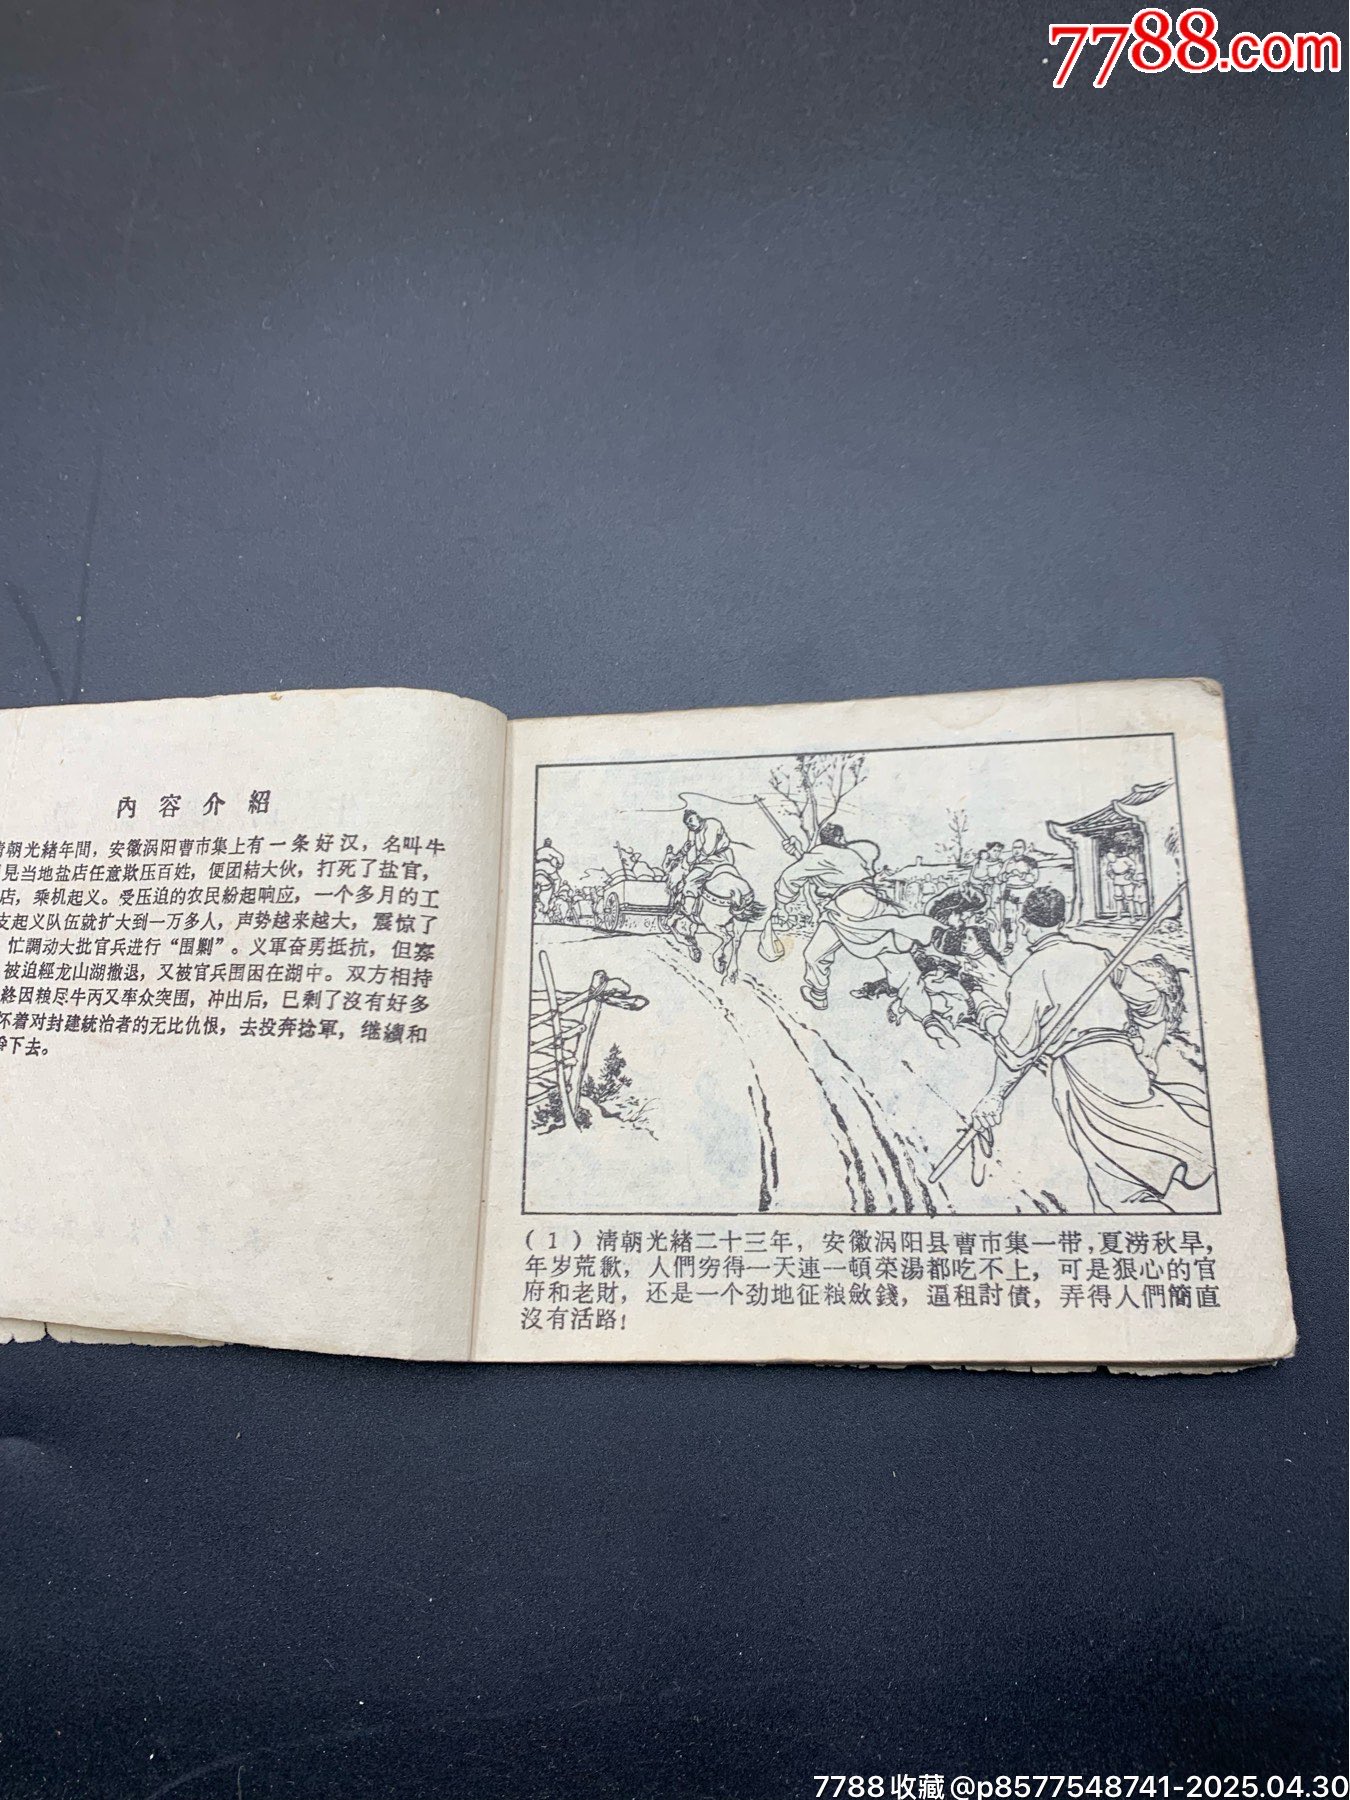 7788.com
內容介紹
清朝光緒年間，安徽涡阳曹市集上有一条好汉，名叫牛
見当地盐店任意欺压百姓，便团結大伙，打死了盐官，
店，乘机起义。受压迫的农民紛起响应，一个多月的工
支起义队伍就扩大到一万多人，声势越来越大，震惊了
忙調动大批官兵进行“围剿”。义軍奋勇抵抗，但寡
被迫經龙山湖撤退，又被官兵围困在湖中。双方相持
終因粮尽牛丙又率众突围，冲出后，已剩了沒有好多
怀着对封建統治者的无比仇恨，去投奔捻軍，继續和
爭下去。
(1)清朝光緒二十三年，安徽涡阳县曹市集一带，夏涝秋旱，
年岁荒歉，人們穷得一天連一頓菜湯都吃不上，可是狠心的官
府和老財，还是一个劲地征粮斂錢，逼租討債，弄得人們簡直
沒有活路！
7788收藏@p8577548741-2025.04.30